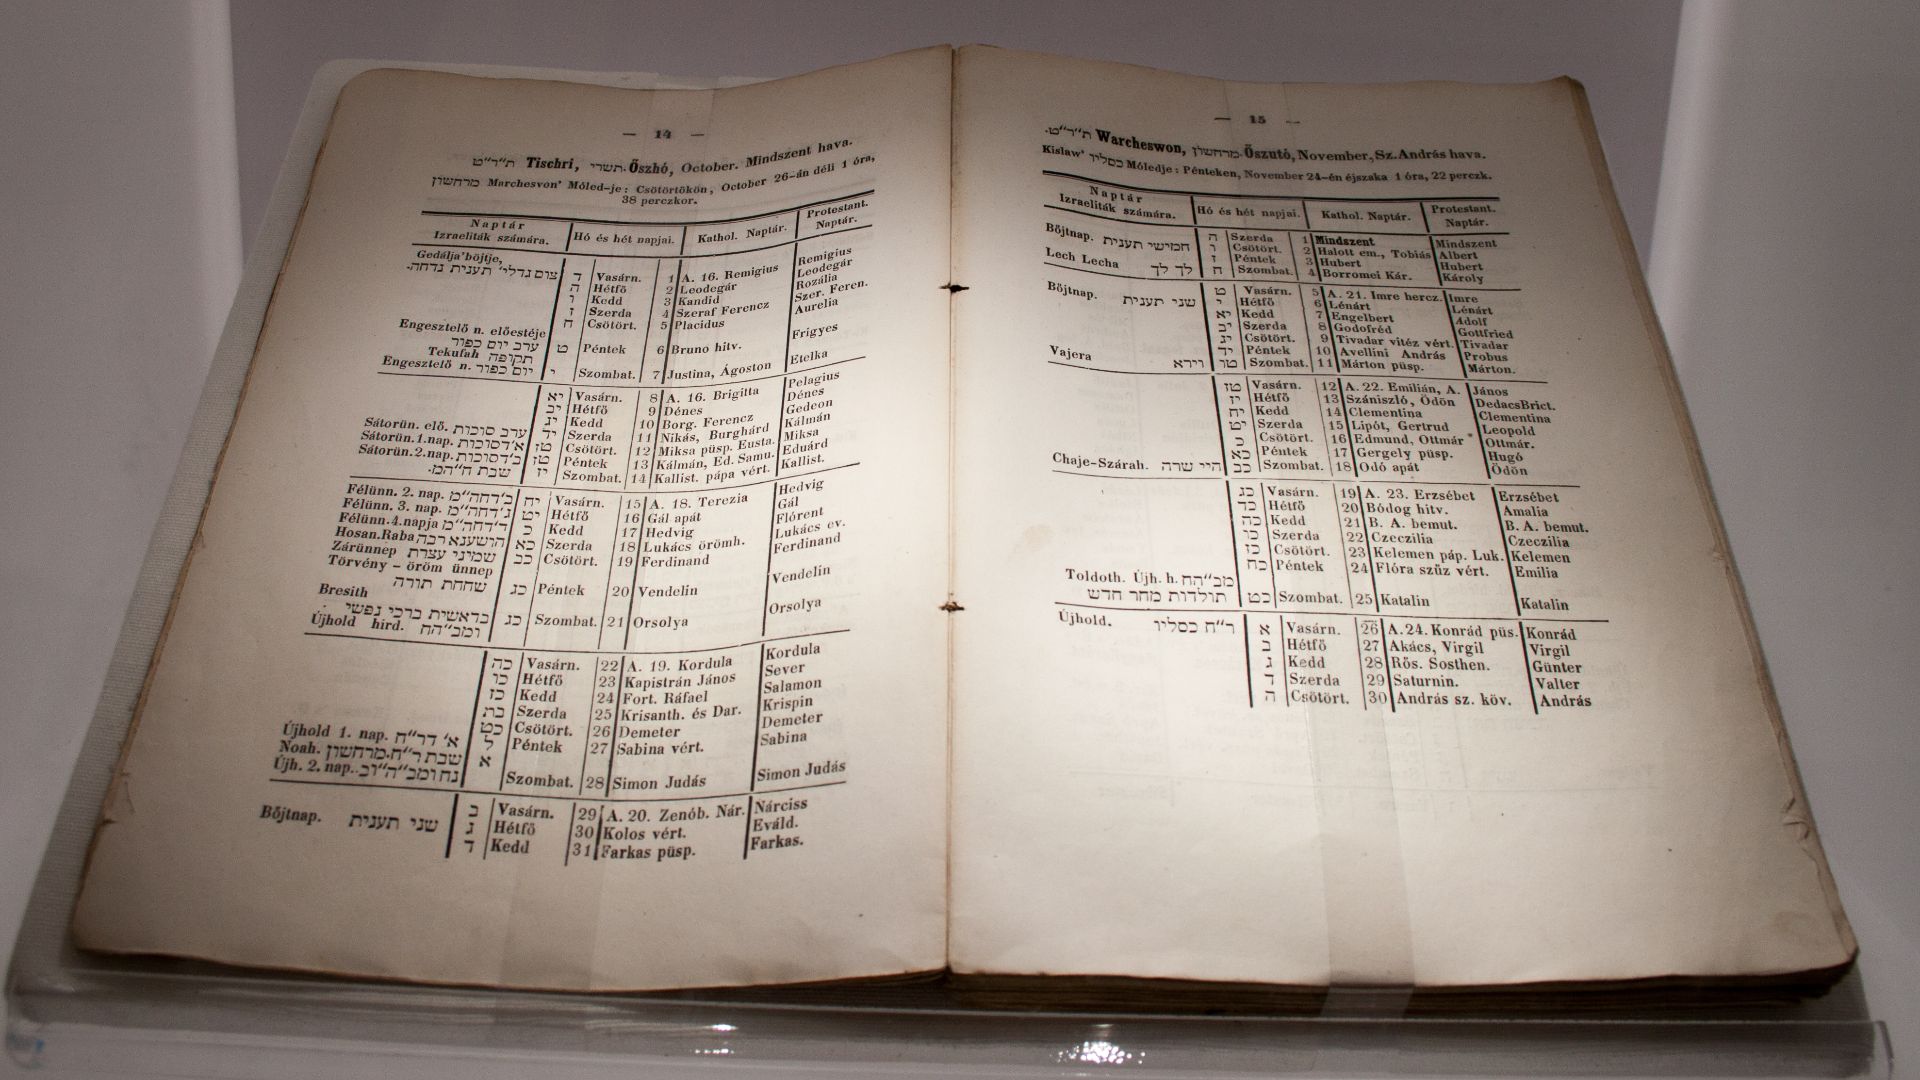 — 14 —
ת״ר״ט Tischri, תשרי. Őszhó, October. Mindszent hava.
מרחשון Marchesvon' Móled-je: Csötörtökön, October 26-án déli 1 óra,
38 perczkor.
Naptár Izraeliták számára. Hó és hét napjai. Kathol. Naptár. Protestant. Naptár.
Gedálja'böjtje,
צום גדלי׳ תענית נדחה. ד Vasárn. 1 A. 16. Remigius Remigius
ה Hétfő 2 Leodegár Leodegár
ו Kedd 3 Kandid Rozália
ז Szerda 4 Szeraf Ferencz Szer. Feren.
ח Csötört. 5 Placidus Aurelia
Engesztelő n. előestéje
ערב יום כפור ט Péntek 6 Bruno hitv. Frigyes
Tekufah תקופה
Engesztelő n. יום כפור י Szombat. 7 Justina, Ágoston Etelka
יא Vasárn. 8 A. 16. Brigitta Pelagius
יב Hétfő 9 Dénes Dénes
יג Kedd 10 Borg. Ferencz Gedeon
Sátorün. elő. ערב סוכות יד Szerda 11 Nikás, Burghárd Kálmán
Sátorün.1.nap. א׳דסוכות טז Csötört. 12 Miksa püsp. Eusta. Miksa
Sátorün.2.nap. ב׳דסוכות טז Péntek 13 Kálmán, Ed. Samu. Eduárd
שבת ח״המ. יז Szombat. 14 Kallist. pápa vért. Kallist.
Félünn. 2. nap. ב׳דחה״מ יח Vasárn. 15 A. 18. Terezia Hedvig
Félünn. 3. nap. ג׳דחה״מ יט Hétfő 16 Gál apát Gál
Félünn.4.napja ד׳דחה״מ כ Kedd 17 Hedvig Flórent
Hosan.Raba הושענא רבה כא Szerda 18 Lukács örömh. Lukács ev.
Zárünnep שמיני עצרת כב Csötört. 19 Ferdinand Ferdinand
Törvény – öröm ünnep
שמחת תורה כג Péntek 20 Vendelin Vendelin
Bresith
בראשית ברכי נפשי כג Szombat. 21 Orsolya Orsolya
Újhold hird. ומב״הח
כה Vasárn. 22 A. 19. Kordula Kordula
כו Hétfő 23 Kapistrán János Sever
כז Kedd 24 Fort. Ráfael Salamon
כח Szerda 25 Krisanth. és Dar. Krispin
כט Csötört. 26 Demeter Demeter
Újhold 1. nap. א׳ דר״ח ל Péntek 27 Sabina vért. Sabina
Noah. שבת ר״ח.מרחשון א
Újh. 2. nap. Szombat. 28 Simon Judás Simon Judás
Bőjtnap. שני תענית ב Vasárn. 29 A. 20. Zenób. Nár. Nárciss
ג Hétfő 30 Kolos vért. Eváld.
ד Kedd 31 Farkas püsp. Farkas.
— 15 —
ת״ר״ט. Warcheswon, מרחשון. Őszutó, November, Sz. András hava.
Kislaw' כסליו Móledje: Pénteken, November 24-én éjszaka 1 óra, 22 perczk.
Naptár Izraeliták számára. Hó és hét napjai. Kathol. Naptár. Protestant. Naptár.
Bőjtnap. חמישי תענית ה Szerda 1 Mindszent Mindszent
ו Csötört. 2 Halott em., Tobiás Albert
ז Péntek 3 Hubert Hubert
Lech Lecha לך לך ח Szombat. 4 Borromei Kár. Károly
Bőjtnap. שני תענית ט Vasárn. 5 A. 21. Imre hercz. Imre
י Hétfő 6 Lénárt Lénárt
יא Kedd 7 Engelbert Adolf
יב Szerda 8 Godofréd Gottfried
יג Csötört. 9 Tivadar vitéz vért. Tivadar
יד Péntek 10 Avellini András Probus
Vajera וירא טו Szombat. 11 Márton püsp. Márton.
טז Vasárn. 12 A. 22. Emilián, A. János
יז Hétfő 13 Szániszló, Ödön DedacsBrict.
יח Kedd 14 Clementina Clementina
יט Szerda 15 Lipót, Gertrud Leopold
כ Csötört. 16 Edmund, Ottmár Ottmár.
כא Péntek 17 Gergely püsp. Hugó
Chaje-Szárah. חיי שרה כב Szombat. 18 Odó apát Ödön
כג Vasárn. 19 A. 23. Erzsébet Erzsébet
כד Hétfő 20 Bódog hitv. Amalia
כה Kedd 21 B. A. bemut. B. A. bemut.
כו Szerda 22 Czeczilia Czeczilia
כז Csötört. 23 Kelemen páp. Luk. Kelemen
כח Péntek 24 Flóra szüz vért. Emilia
Toldoth. Újh. h. מב״הח
תולדות מחר חדש כט Szombat. 25 Katalin Katalin
Újhold. ר״ח כסליו א Vasárn. 26 A.24. Konrád püs. Konrád
ב Hétfő 27 Akács, Virgil Virgil
ג Kedd 28 Rős. Sosthen. Günter
ד Szerda 29 Saturnin. Valter
ה Csötört. 30 András sz. köv. András